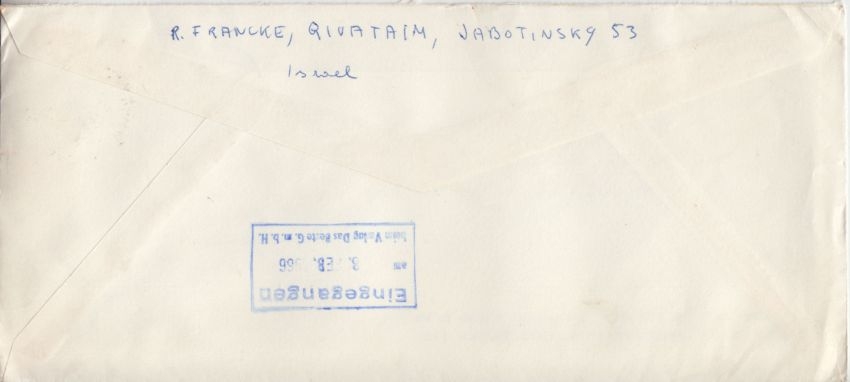 R. FRANCKE, GIVATAIM, JABOTINSKY 53
Israel
Eingegangen
am 8. FEB. 1966
beim Verlag Das Beste G. m. b. H.